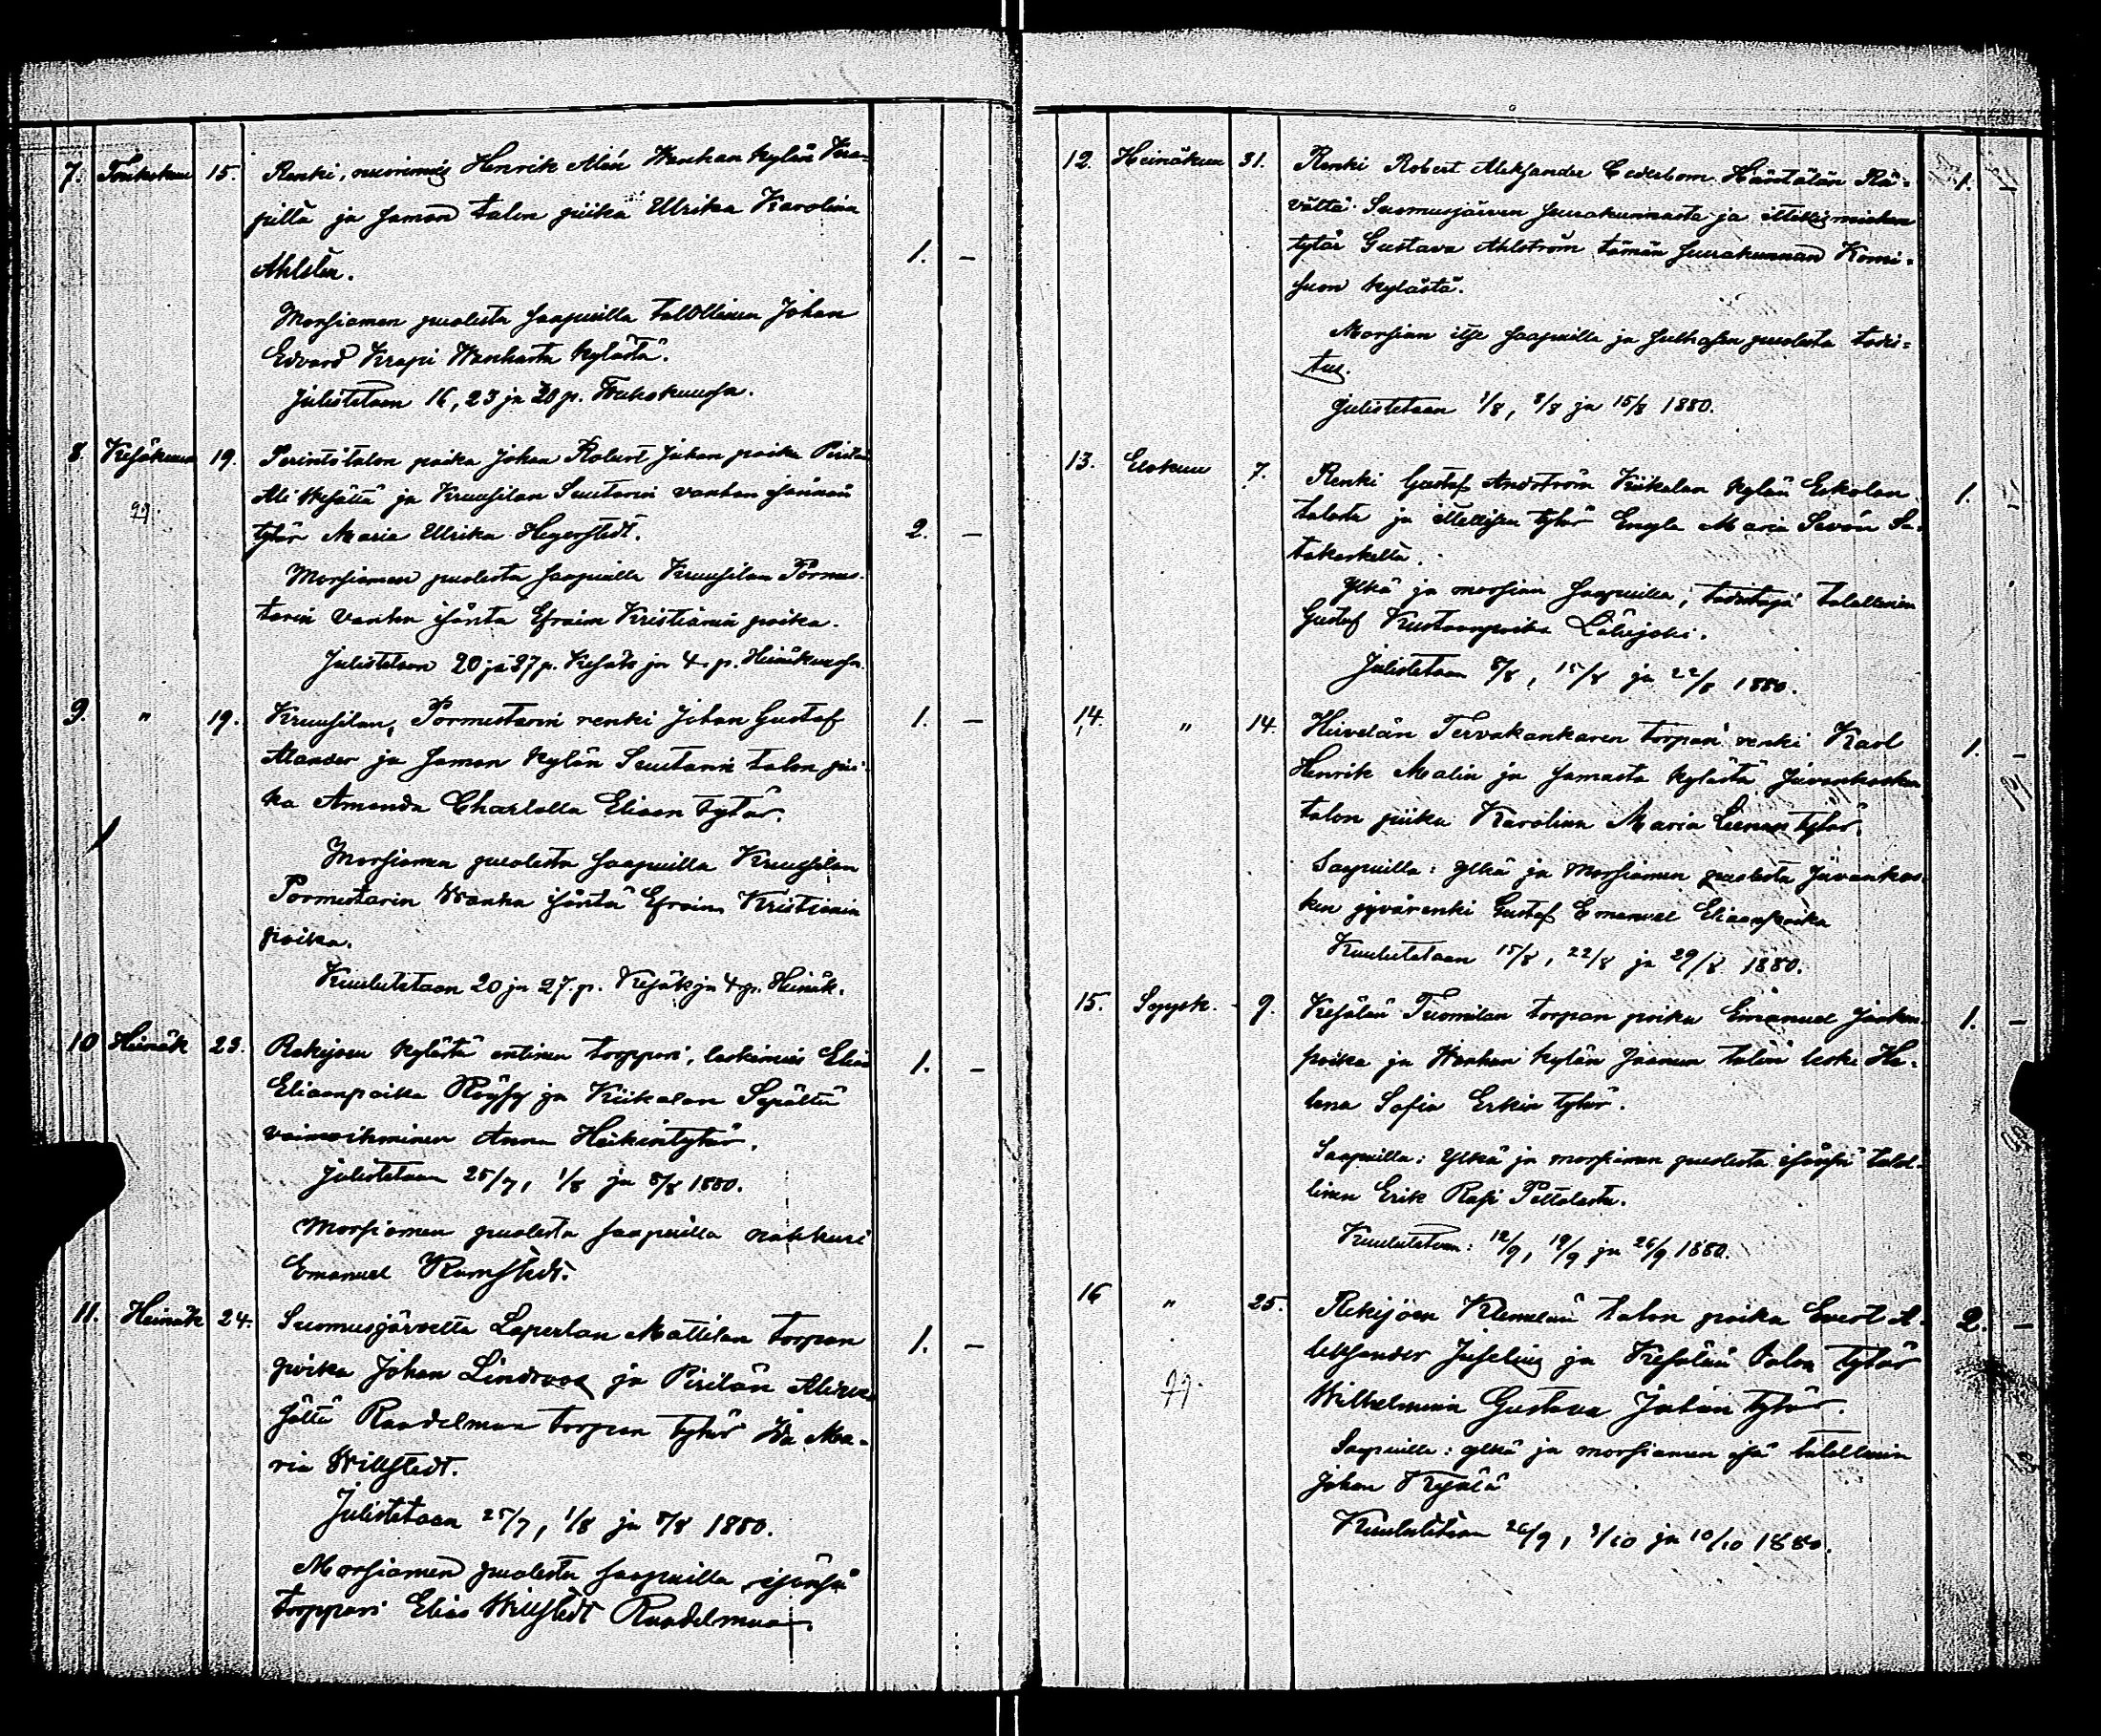 7. Toukokuun 15. Renki, nuorimies Henrik Alén Wanhan kylän Kra-
pilta ja saman talon piika Ulrika Karolina
Ahlsten. 1. —
Morsiamen puolesta saapuilla talollinen Johan
Edvard Krapi Wanhasta kylästä.
Julistetaan 16, 23 ja 30 p. Toukokuussa.
8. Kesäkuun 19. Perintötalon poika Johan Robert Juhan poika Pirilän
Alikesältä ja Kruusilan Suutarin vanhan isännän
tytär Maria Ulrika Hegerstedt. 2. —
Morsiamen puolesta saapuilla Kruusilan Pormes-
tarin vanha isäntä Efraim Kristianin poika.
Julistetaan 20 ja 27 p. Kesäk. ja 4. p. Heinäkuussa.
9. " 19. Kruusilan, Pormestarin renki Johan Gustaf 1. —
Alander ja saman kylän Suutarin talon pii-
ka Amanda Charlotta Elian tytär.
Morsiamen puolesta saapuilla Kruusilan
Pormestarin Wanha isäntä Efraim Kristianin
poika.
Kuulutetaan 20 ja 27. p. Kesäk. ja 4. p. Heinäk.
10 Heinäk 23. Rekijoen kylästä entinen torppari, leskimies Elias 1. —
Eliaanpoika Röysy ja Kiikalan Sepältä
vaimoihminen Anna Heikintytär.
Julistetaan 25/7, 1/8 ja 8/8 1880.
Morsiamen puolesta saapuilla nahkuri
Emanuel Ramstedt.
11. Heinäk 24. Suomusjärveltä Laperlan Mattilan torpan 1. —
poika Johan Lindroos ja Pirilän Alikes-
ältä Raadelman torpan tytär Ida Ma-
ria Willstedt.
Julistetaan 25/7, 1/8 ja 8/8 1880.
Morsiamen puolesta saapuilla isänsä
torppari Elias Willstedt Raadelmaa.
12. Heinäkuun 31. Renki Robert Aleksander Cederbom Häntälän Rä- 1. —
vältä Suomusjärven seurakunnasta ja itellismiehen
tytär Gustava Ahlström tämän seurakunnan Komi-
suon kylästä.
Morsian itse saapuilla ja sulhasen puolesta todis-
tus.
Julistetaan 1/8, 8/8 ja 15/8 1880.
13. Elokuu 7. Renki Gustaf Andström Kiikalan kylän Eskolan 1. —
talosta ja itellisen tytär Engla Maria Sevón Sa-
takoskelta.
Ylkä ja morsian saapuilla, todistaja talollinen
Gustaf Kustaanpoika Lähijoki.
Julistetaan 8/8, 15/8 ja 22/8 1880.
14. " 14. Hirvelän Tervakankaren torpan renki Karl 1. —
Henrik Malin ja samasta kylästä Juvankosken
talon piika Karolina Maria Leenan tytär.
Saapuilla: ylkä ja Morsiamen puolesta Juvankos-
ken jyvärenki Gustaf Emanuel Eliaanpoika
Kuulutetaan 15/8, 22/8 ja 29/8 1880.
15. Syysk. 9. Kesälän Tuomilan torpan poika Emanuel Jaakon- 1. —
poika ja Wanhan kylän Jaanun talon leski He-
lena Sofia Erkin tytär.
Saapuilla: Ylkä ja morsiamen puolesta isänsä talol-
linen Erik Rapi Peltolasta.
Kuulutetaan: 12/9, 19/9 ja 26/9 1880.
16 " 25. Rekijoen Klemelän talon poika Evert A- 2. —
leksander Juselius ja Kesälän talon tytär
Wilhelmina Gustava Juhan tytär.
Saapuilla: ylkä ja morsiamen isä talollinen
Johan Kesälä
Kuulutetaan 26/9, 3/10 ja 10/10 1880.